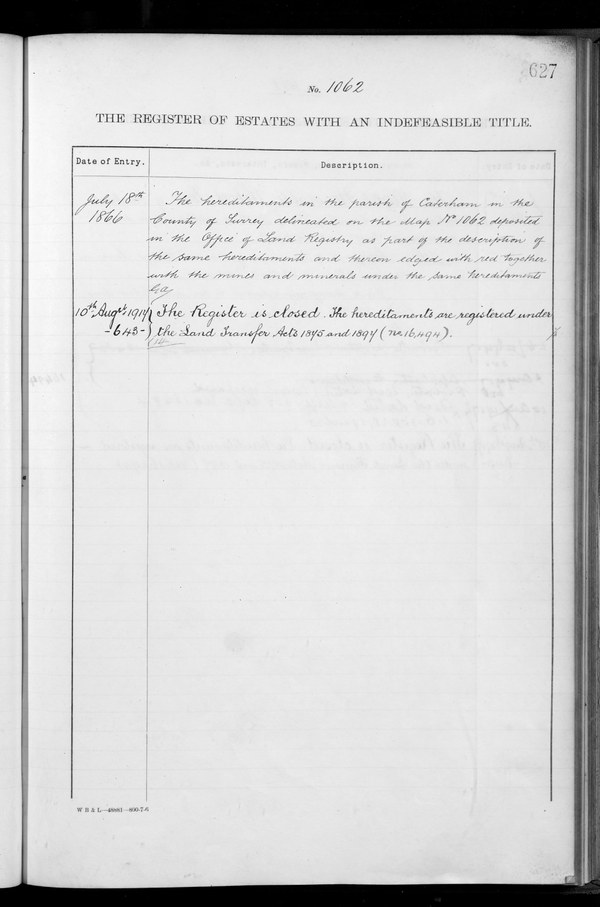 627
No. 1062
THE REGISTER OF ESTATES WITH AN INDEFEASIBLE TITLE.
Date of Entry.
Description.
July 18th
1866
The hereditaments in the parish of Caterham in the
County of Surrey delineated on the Map No 1062 deposited
in the Office of Land Registry as part of the description of
the same hereditaments and thereon edged with red together
with the mines and minerals under the same hereditaments
10th Augst. 1914
- 643 -
The Register is closed. The hereditaments are registered under
the Land Transfer Acts 1875 and 1897 (no. 16,494).
W B & L—49881—800-7-6